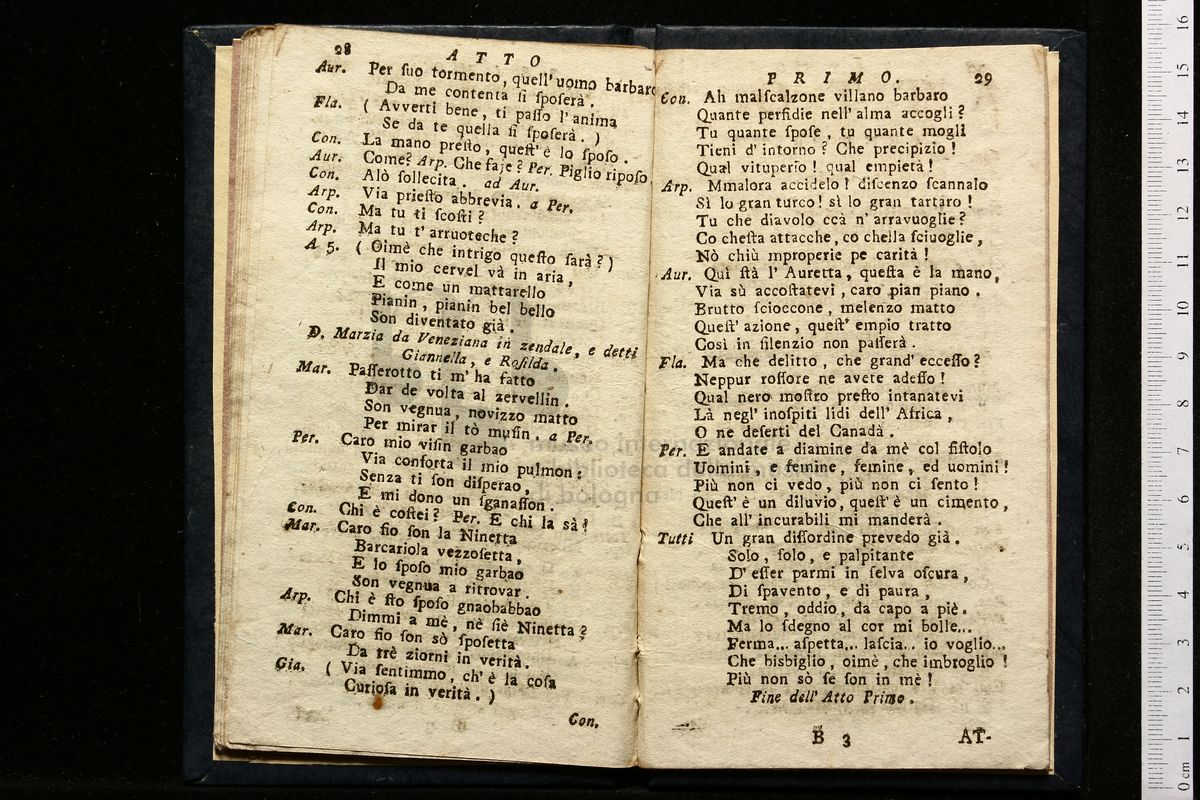 28
A T T O
Aur. Per ſuo tormento, quell' uomo barbaro
Da me contenta ſi ſpoſerà.
Fla. ( Avverti bene, ti paſſo l'anima
Se da te quella ſi ſpoſerà. )
Con. La mano preſto, queſt'è lo ſpoſo.
Aur. Come? Arp. Che faje? Per. Piglio ripoſo
Con. Alò ſollecita. ad Aur.
Arp. Via prieſto abbrevia. a Per.
Con. Ma tu ti ſcoſti?
Arp. Ma tu t'arruoteche?
A 5. ( Oimè che intrigo queſto ſarà?)
Il mio cervel và in aria,
E come un mattarello
Pianin, pianin bel bello
Son diventato già.
D. Marzia da Veneziana in zendale, e detti
Giannella, e Roſilda.
Mar. Paſſerotto ti m'ha fatto
Dar de volta al zervellin.
Son vegnua, novizzo matto
Per mirar il tò muſin. a Per.
Per. Caro mio viſin garbao
Via conforta il mio pulmon:
Senza ti ſon diſperao,
E mi dono un ſganaſſon.
Con. Chi è coſtei? Per. E chi la sà?
Mar. Caro ſio ſon la Ninetta
Barcariola vezzoſetta,
E lo ſpoſo mio garbao
Son vegnua a ritrovar.
Arp. Chi è ſto ſpoſo gnaobabbao
Dimmi a mè, nè ſiè Ninetta?
Mar. Caro ſio ſon sò ſpoſetta
Da trè ziorni in verità.
Gia. ( Via ſentimmo, ch'è la coſa
Curioſa in verità. )
Con.
P R I M O. 29
Con. Ah malſcalzone villano barbaro
Quante perfidie nell'alma accogli?
Tu quante ſpoſe, tu quante mogli
Tieni d'intorno? Che precipizio!
Qual vituperio! qual empietà!
Arp. Mmalora accidelo! diſcenzo ſcannalo
Sì lo gran turco! sì lo gran tartaro!
Tu che diavolo ccà n'arravuoglie?
Co cheſta attacche, co chella ſciuoglie,
Nò chiù mproperie pe carità!
Aur. Qui ſtà l'Auretta, queſta è la mano,
Via sù accoſtatevi, caro pian piano.
Brutto ſcioccone, melenzo matto
Queſt'azione, queſt'empio tratto
Così in ſilenzio non paſſerà.
Fla. Ma che delitto, che grand'ecceſſo?
Neppur roſſore ne avete adeſſo!
Qual nero moſtro preſto intanatevi
Là negl'inoſpiti lidi dell'Africa,
O ne deſerti del Canadà.
Per. E andate a diamine da mè col fiſtolo
Uomini, e femine, femine, ed uomini!
Più non ci vedo, più non ci ſento!
Queſt'è un diluvio, queſt'è un cimento,
Che all'incurabili mi manderà.
Tutti Un gran diſſordine prevedo già.
Solo, ſolo, e palpitante
D'eſſer parmi in ſelva oſcura,
Di ſpavento, e di paura,
Tremo, oddio, da capo a piè.
Ma lo ſdegno al cor mi bolle...
Ferma... aſpetta... laſcia.. io voglio...
Che bisbiglio, oimè, che imbroglio!
Più non sò ſe ſon in mè!
Fine dell'Atto Primo.
B 3 AT-
museo internazionale
biblioteca della musica
di bologna
0 cm 1 2 3 4 5 6 7 8 9 10 11 12 13 14 15 16